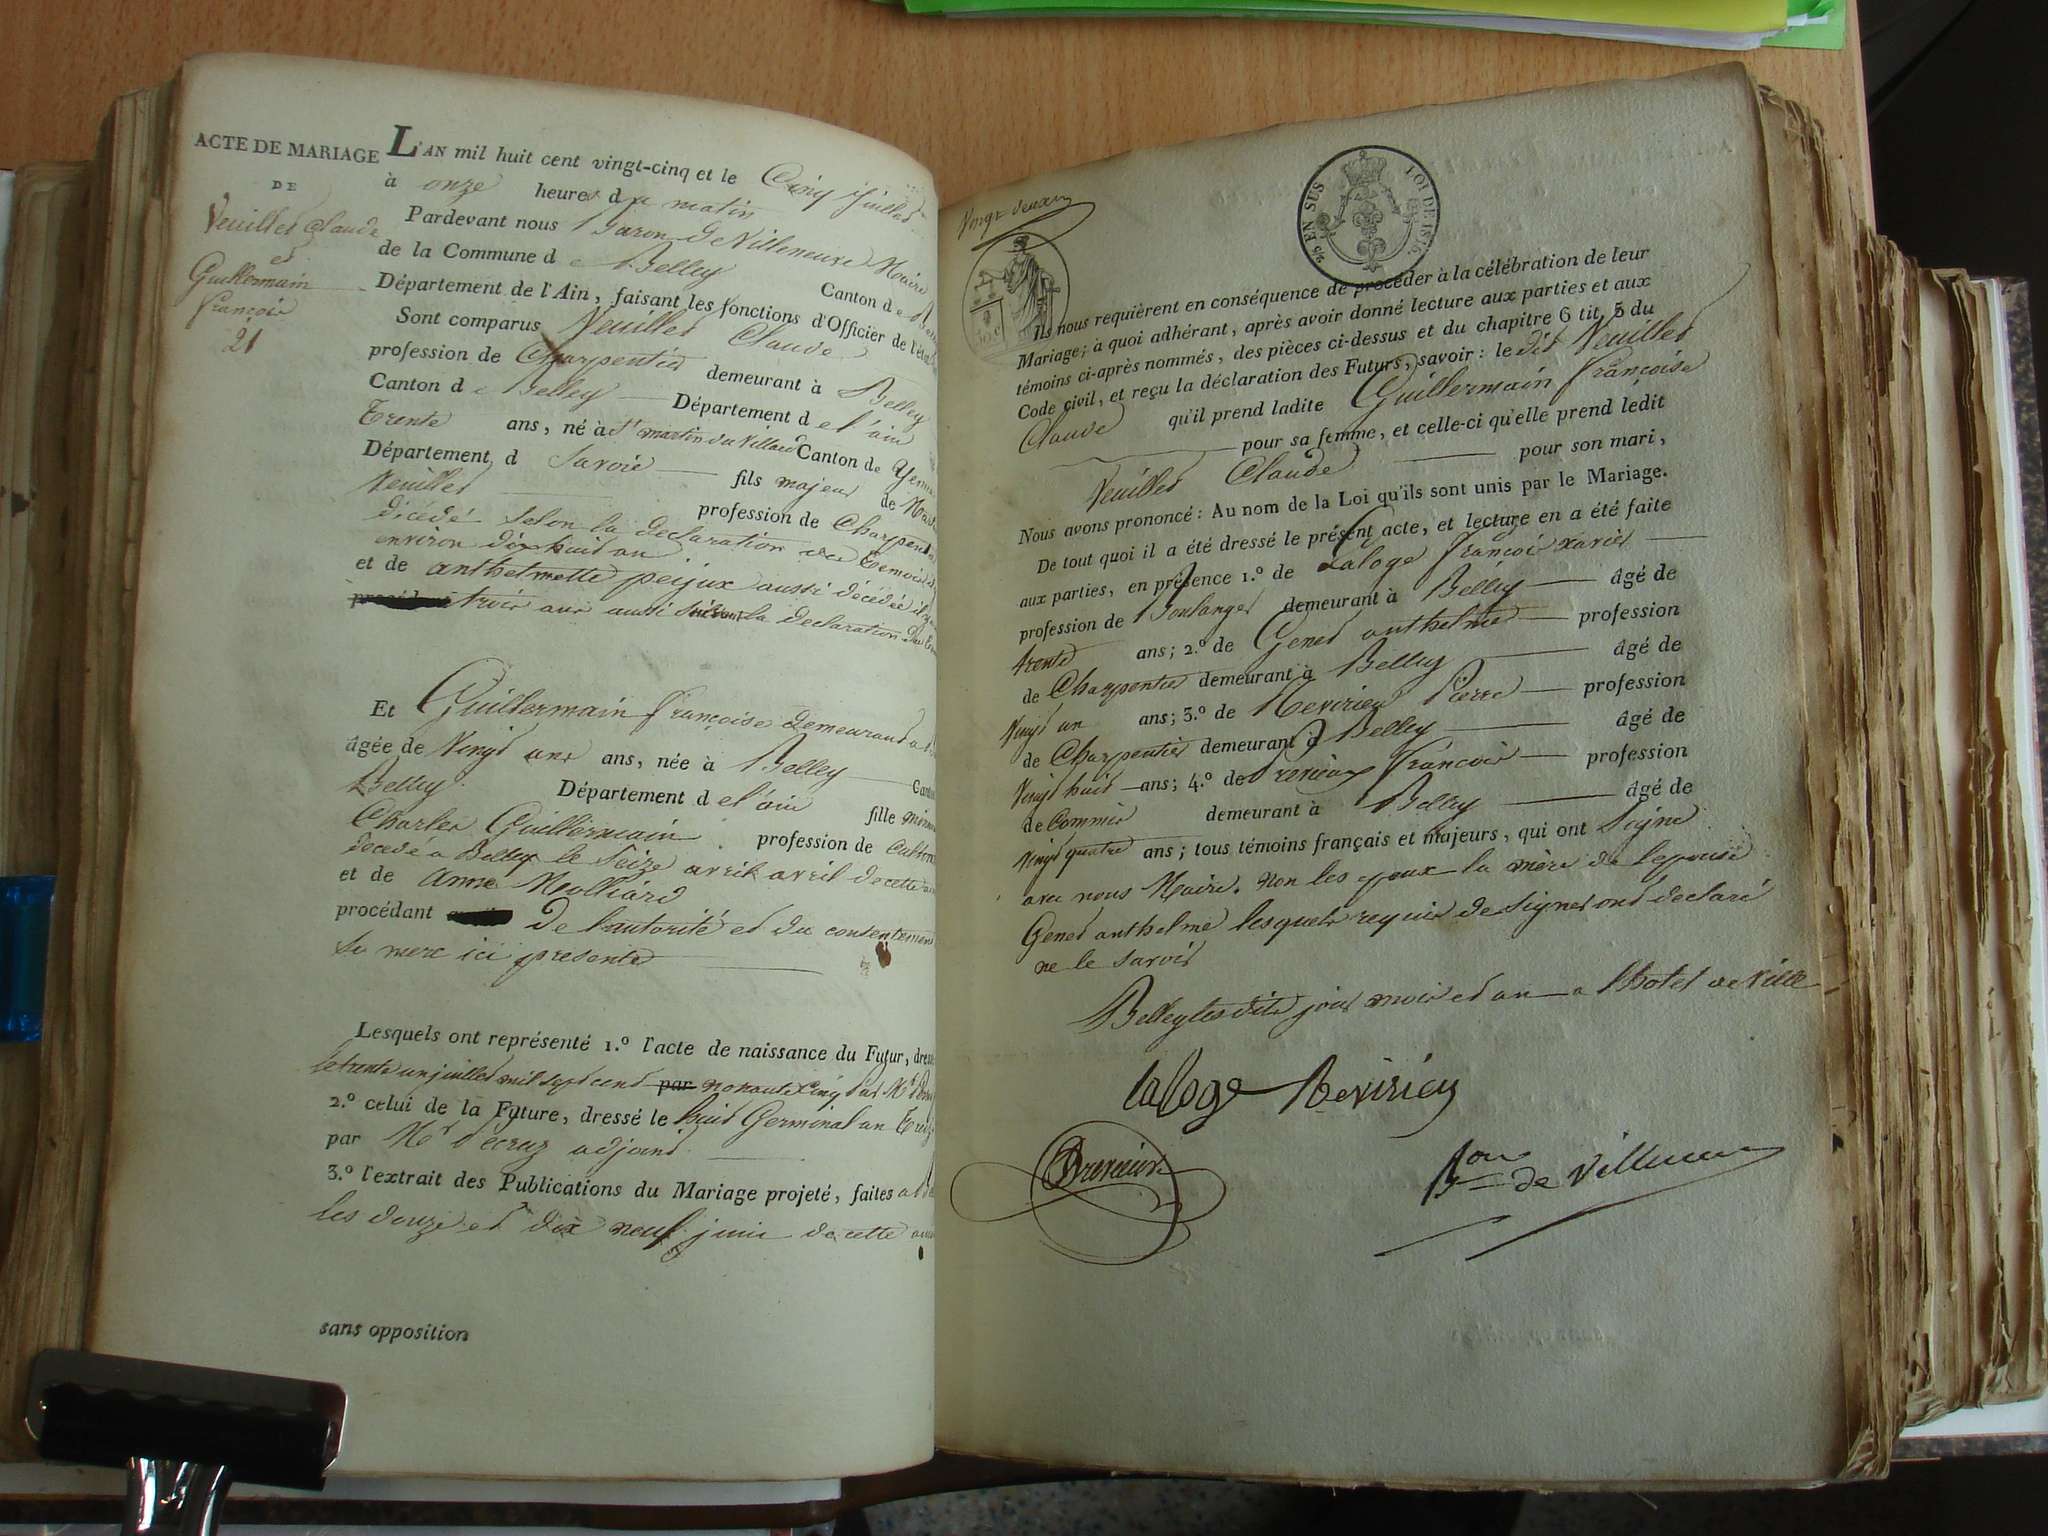 ACTE DE MARIAGE
DE
Veuillet Claude
et
Guillermain
françoise
21
L'AN mil huit cent vingt-cinq et le Cinq Juillet
à onze heures du matin
Pardevant nous Baron de Villeneuve Maire
de la Commune de Belley Canton de
Département de l'Ain, faisant les fonctions d'Officier de l'état
Sont comparus Veuillet Claude
profession de Charpentier demeurant à Belley
Canton de Belley Département de l'ain
Trente ans, né à St martin du Villard Canton de Yenne
Département d Savoie fils majeur de
Veuillet profession de Charpentier
décédé selon la declaration des temoins
environ dix huit an
et de anthelmette peijux aussi décédée il y a
trois ans aussi suivant la declaration des
Et Guillermain françoise demeurant a
âgée de Vingt ans ans, née à Belley
Belley Département de l'ain fille mineure
Charles Guillermain profession de
decedé a Belley le Seize avril avril de cette
et de Anne Molliard
procédant De l'autorité et du consentement
Sa mere ici presente
Lesquels ont représenté 1.º l'acte de naissance du Futur, dressé
le trente un juillet mil sept cent par nonante cinq par Mr
2.º celui de la Future, dressé le huit Germinal an Treize
par Mr Decruz adjoint
3.º l'extrait des Publications du Mariage projeté, faites a
les douze et dix neuf juin de cette
sans opposition
Vingt deux
EN SUS
LOI DE 1816
Ils nous requièrent en conséquence de procéder à la célébration de leur
Mariage; à quoi adhérant, après avoir donné lecture aux parties et aux
témoins ci-après nommés, des pièces ci-dessus et du chapitre 6 tit. 5 du
Code civil, et reçu la déclaration des Futurs, savoir: le dit Veuillet
Claude qu'il prend ladite Guillermain françoise
pour sa femme, et celle-ci qu'elle prend ledit
Veuillet Claude pour son mari,
Nous avons prononcé: Au nom de la Loi qu'ils sont unis par le Mariage.
De tout quoi il a été dressé le présent acte, et lecture en a été faite
aux parties, en présence 1.º de Laloge françois xavier
profession de Boulanger demeurant à Belley âgé de
trente ans; 2.º de Genet anthelme profession
de Charpentier demeurant à Belley âgé de
Vingt un ans; 3.º de Revirieu Pierre profession
de Charpentier demeurant à Belley âgé de
Vingt huit ans; 4.º de françois profession
de Commis demeurant à Belley âgé de
Vingt quatre ans; tous témoins français et majeurs, qui ont Signé
avec nous Maire. non les epoux la mère de l'epouse
Genet anthelme lesquels requis de signer ont declaré
ne le savoir
Belley les dits jour mois et an a l'hotel de Ville
laloge Revirieu
Bon de Villeneuve